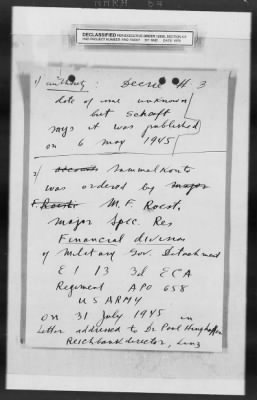 DECLASSIFIED
1) authority: Decree # 3
date of issue unknown
but Schaeft
says it was published
on 6 may 1945
2) Sammelkonto
was ordered by major
F. Roest
M. F. Roest.
major Spec. Res
Financial division
of Military Gov. Detachment
E 1 / 3 3d ECA
Regiment APO 658
US ARMY
on 31 July 1945 in
Letter addressed to Dr. Paul
Reichbankdirector, Linz